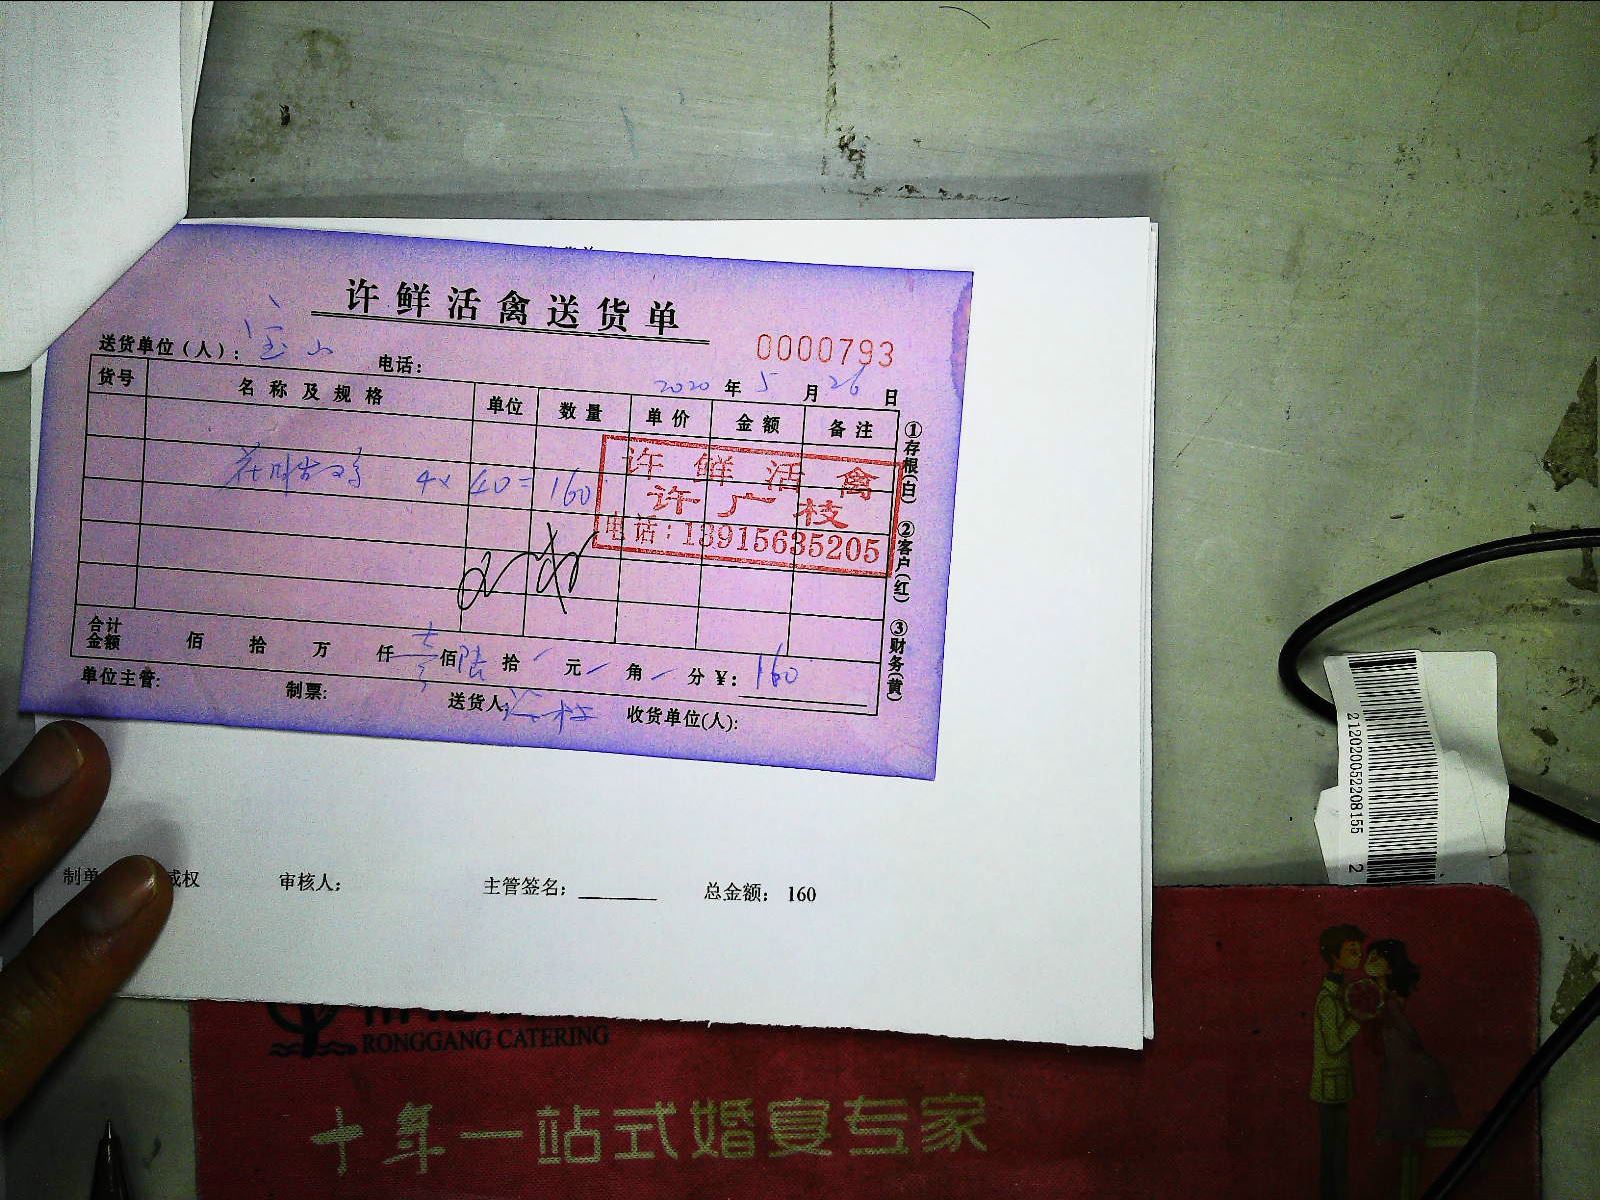 许鲜活禽送货单
0000793
送货单位(人): 宝山 电话:
2020 年 5 月 26 日
货号 名称及规格 单位 数量 单价 金额 备注
4x 40=160
许鲜活禽
许广枝
电话:13915635205
合计金额 佰 拾 万 仟 壹 佰 陆 拾 元 角 分 ¥: 160
单位主管: 制票: 送货人 收货单位(人):
①存根(白) ②客户(红) ③财务(黄)
制单 成权 审核人: 主管签名: 总金额: 160
2120200522208155 2
RONGGANG CATERING
十年一站式婚宴专家